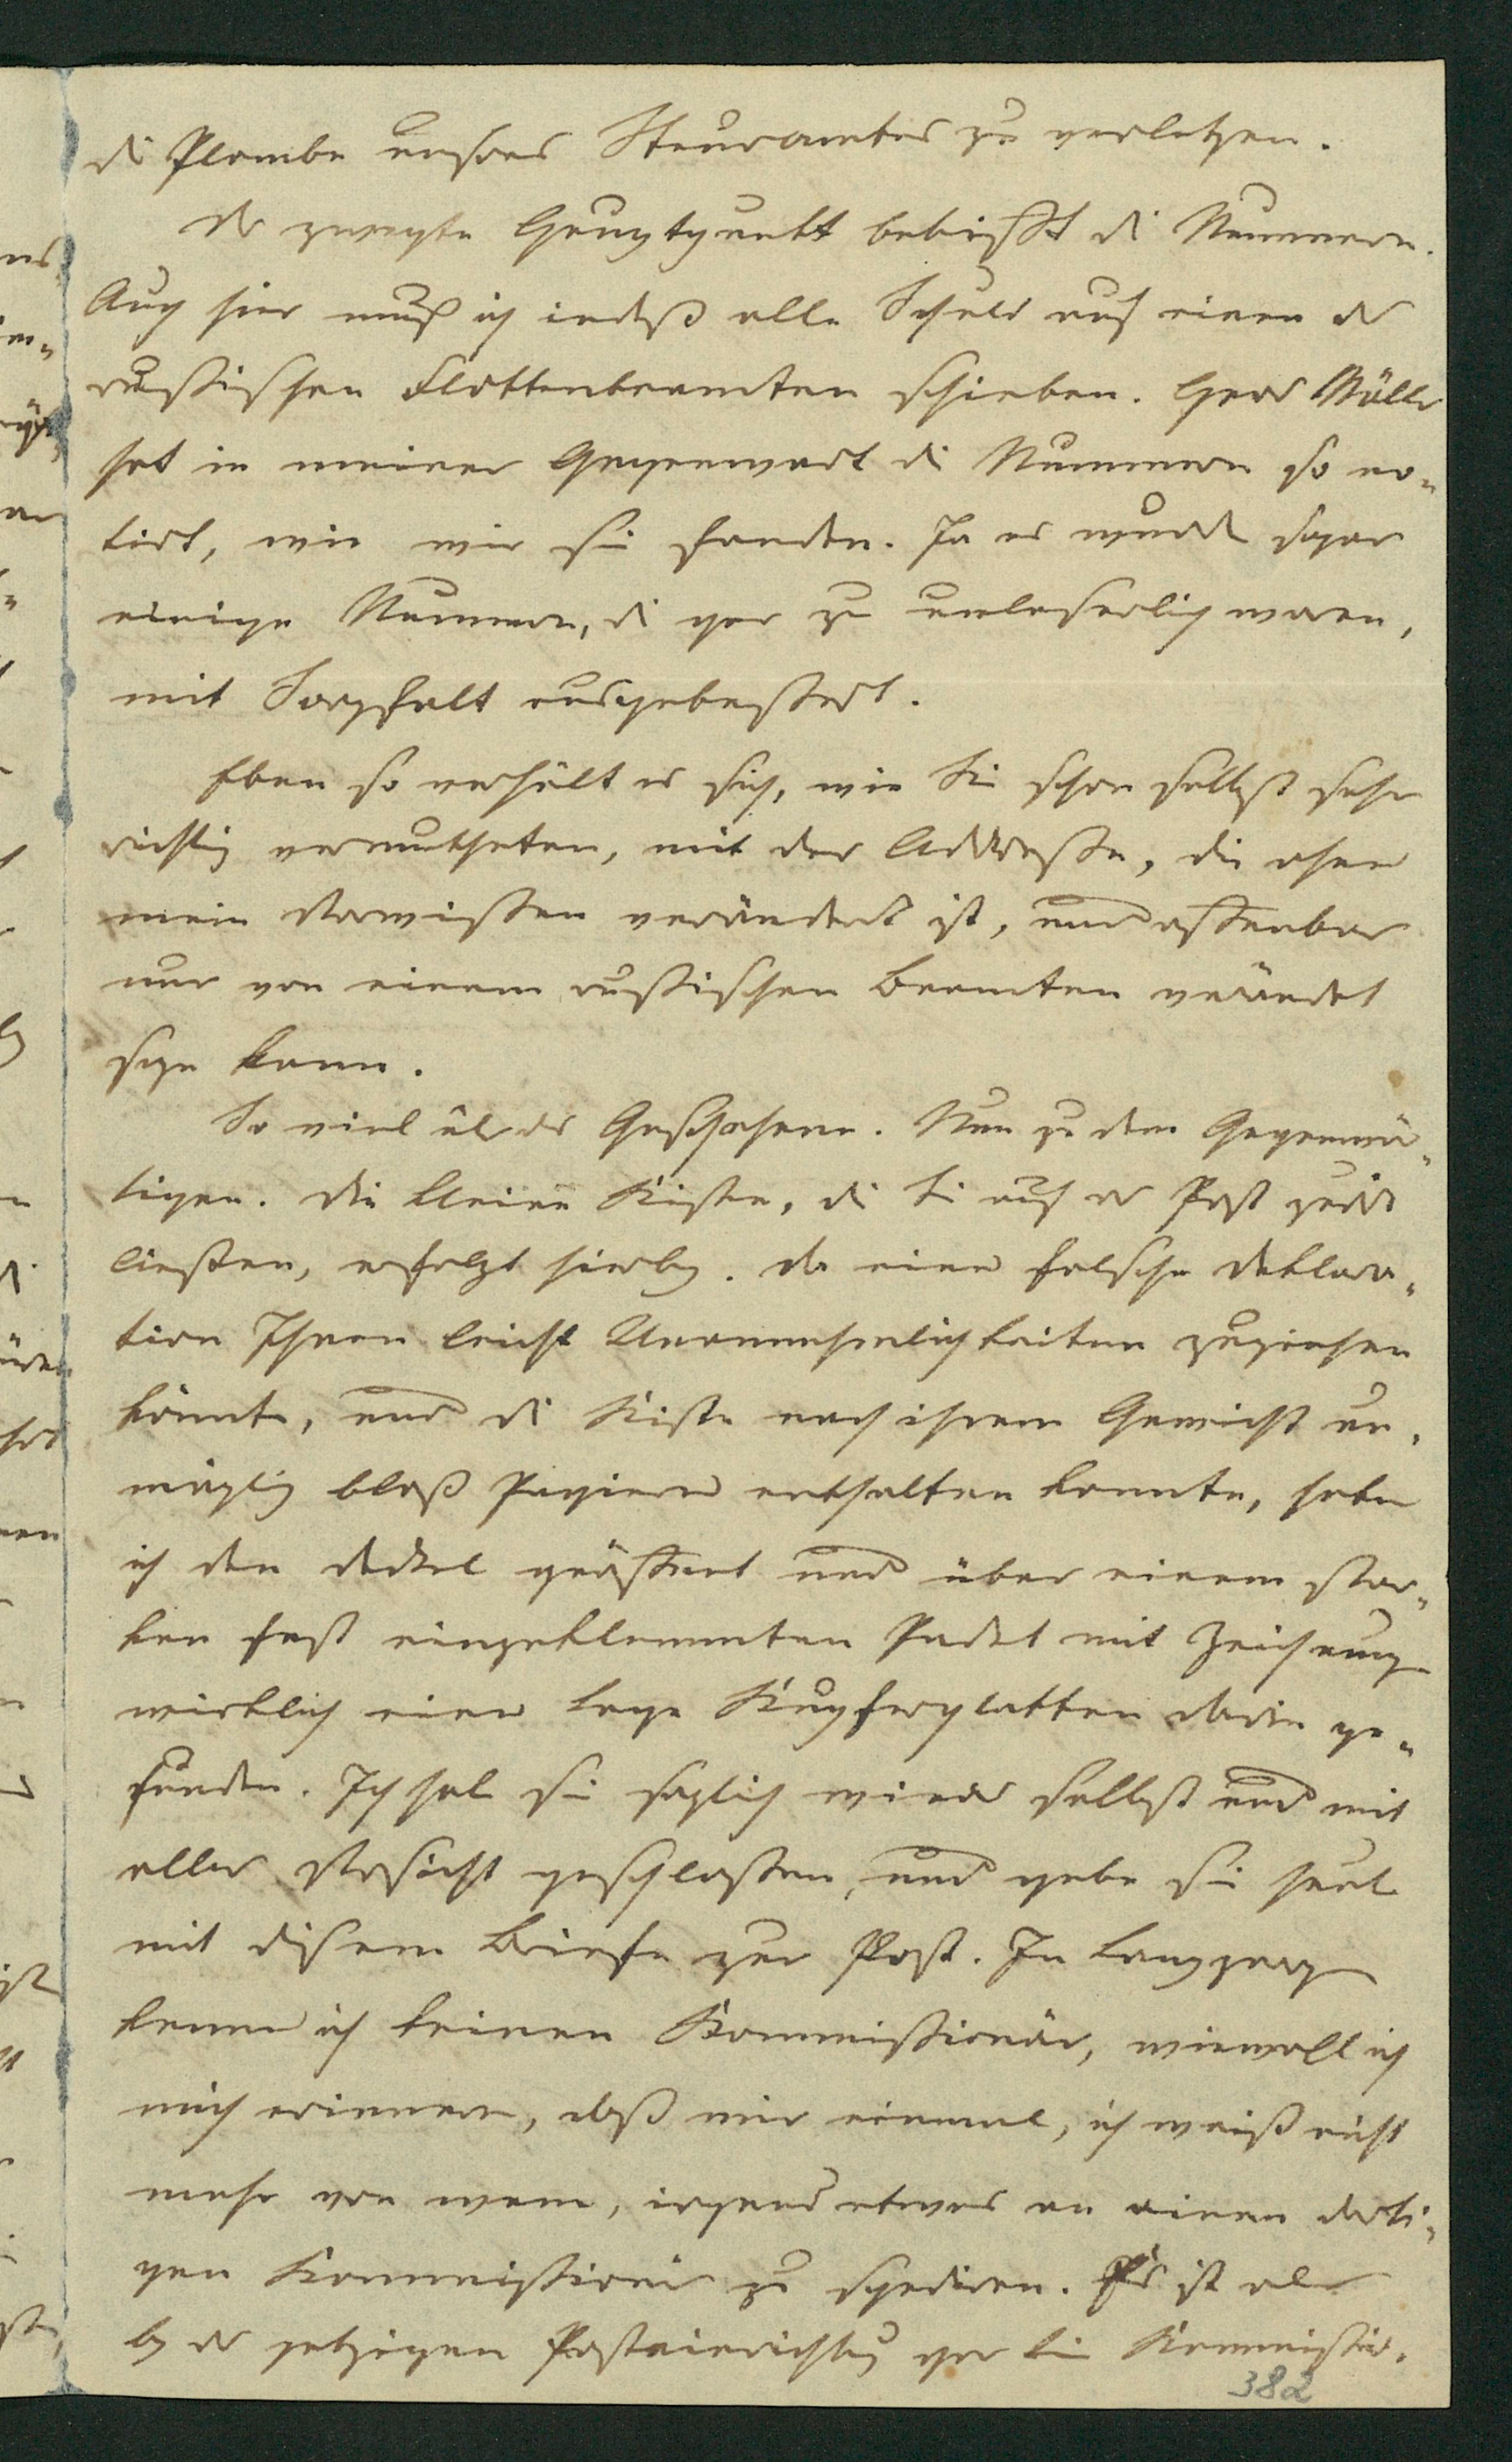 die Plombe unsres Steueramtes zu verletzen.
Der zweyte Hauptpunkt betrifft die Nummern.
Auch hier muß ich indeß alle Schuld auf einen der
russischen Flottenbeamten schieben. Herr Müller
hat in meiner Gegenwart die Nummern so no-
tirt, wie wir sie fanden. Ja es wurden sogar
einige Nummern, die gar zu unleserlich waren,
mit Sorgfalt ausgebessert.
Eben so verhält es sich, wie Sie schon selbst sehr
richtig vermutheten, mit der Addresse, die ohne
mein Vorwissen verändert ist, und offenbar
nur von einem russischen Beamten verändert
seyn kann.
So viel über das Geschehene. Nun zu dem Gegenwär-
tigen. Die kleine Kiste, die Sie auf der Post zurück
ließen, erfolgt hierbey. Da eine falsche Deklara-
tion Ihnen leicht Unannehmlichkeiten zuziehen
könnte, und die Kiste nach ihrem Gewicht un-
möglich bloß Papiere enthalten konnte, habe
ich den Deckel geöffnet und über einem star-
ken fest eingeklemmten Packet mit Zeichnungen
wirklich eine Lage Kupferplatten darin ge-
funden. Ich habe sie sogleich wieder selbst und mit
aller Vorsicht geschlossen, und gebe sie heute
mit diesem Briefe zur Post. In
kenne ich keinen Kommissionär, wiewohl ich
mich erinnere, daß mir einmal, ich weiß nicht
mehr von wem, irgend etwas an einen dorti-
gen Kommissionär zu spediren. Es ist aber
bey der jetzigen Posteinrichtung gar kein Kommissio-
382